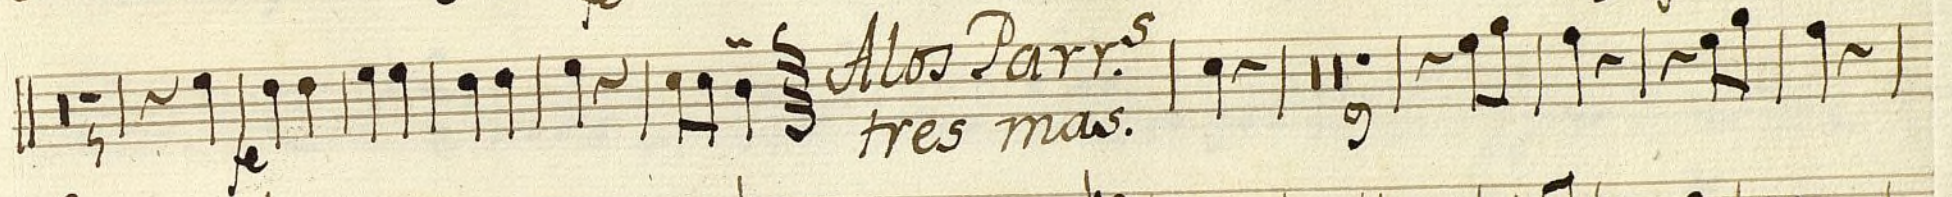 5
fe
Alos Parr.s
tres mas.
9